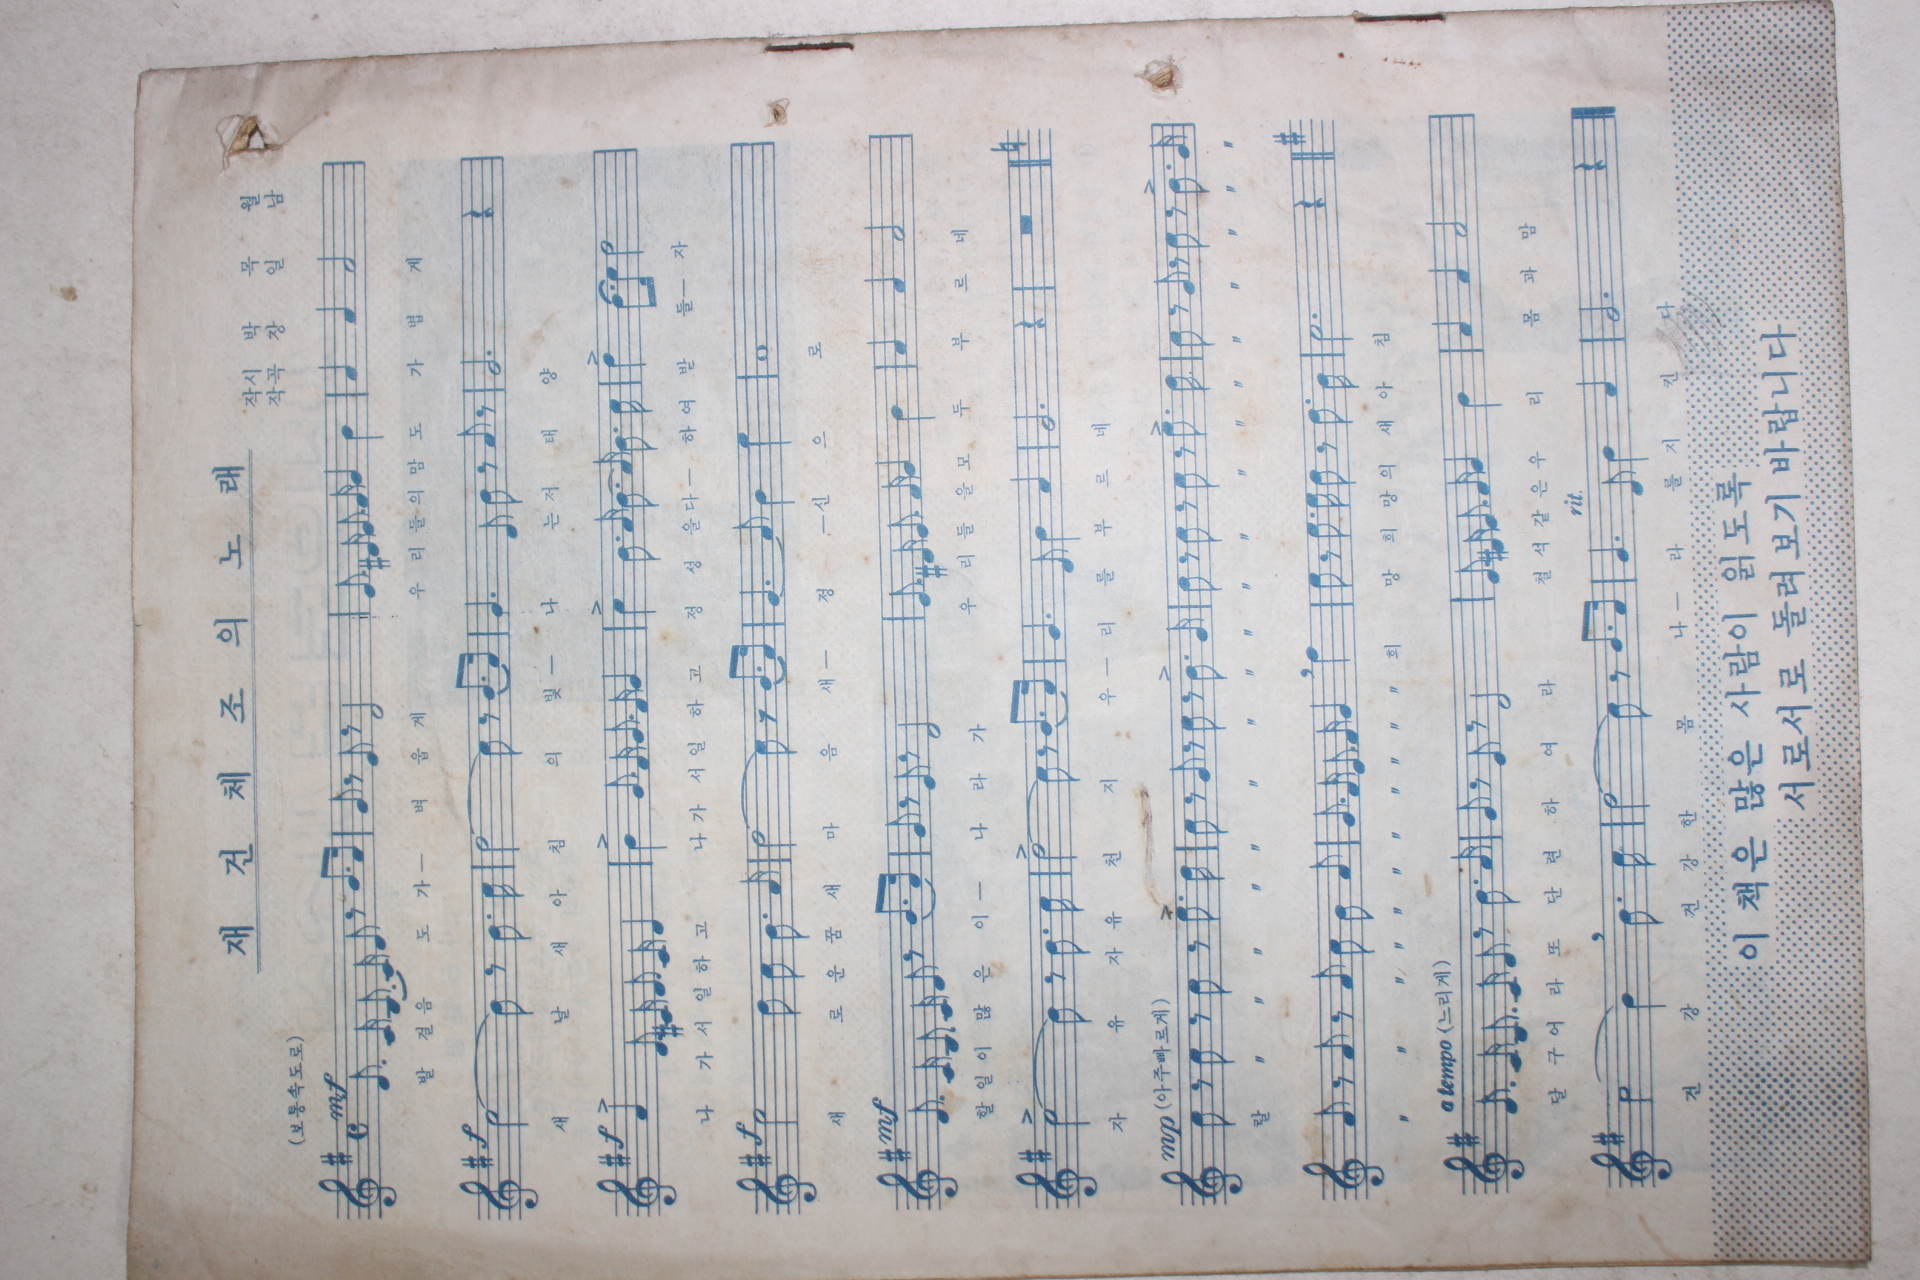 재건체조의노래
작시 박목월
작곡 장일남
(보통속도로)
mf
발걸음도가— 벼웁게 우리들의맘도 가볍게
f
새날 새아침의 빛— 나는저태양
f
나가서일하고 나가서일하고 정성을다— 하여받들—자
f
새로운꿈새마음새— 정—신으로
mf
할일이많은이— 나라가 우리들을모두부르네
자유자유천지우— 리를부르네
mp (아주빠르게)
랄 〃 〃 〃 〃 〃 〃 〃 〃 〃 〃 〃 〃 〃 〃 〃 〃 〃 〃
〃 〃 〃 〃 〃 〃 〃 〃 〃 희망희망의새아침
a tempo (느리게)
달구어라또단련하여라 철석같은우리몸과맘
rit.
건강건강한몸나— 라를지킨다
이 책은 많은 사람이 읽도록
서로서로 돌려보기 바랍니다